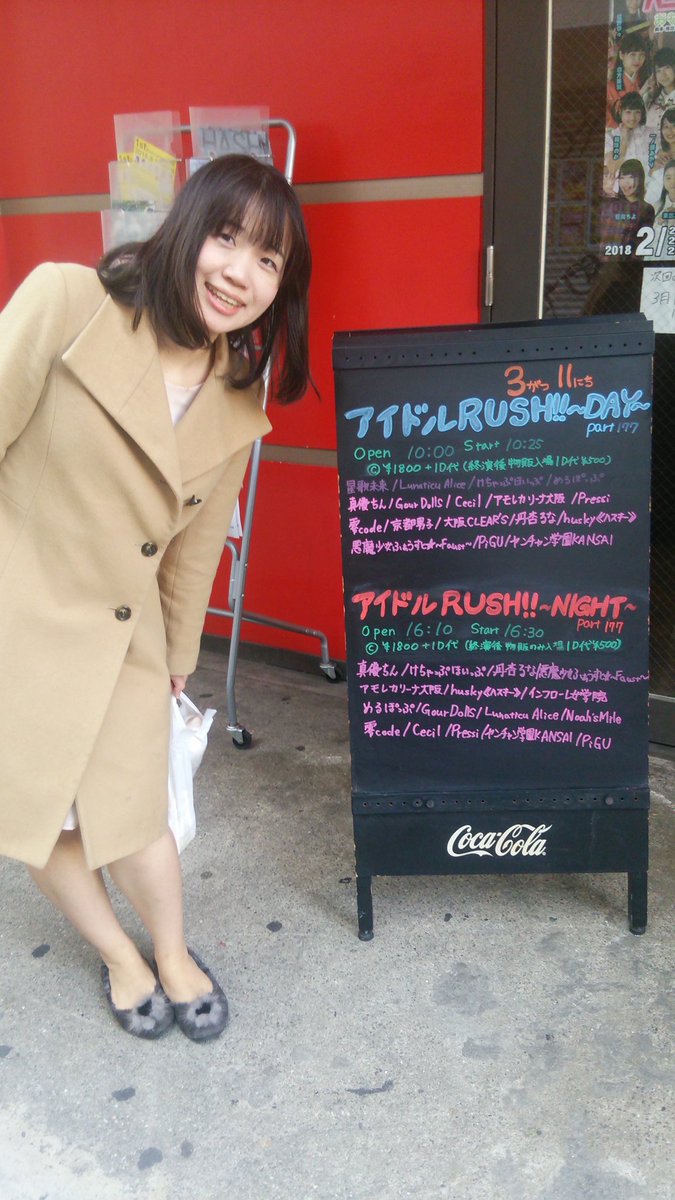 2018 2/
次回の
3月
3がつ 11にち
アイドルRUSH!!~DAY~
part 177
Open 10:00 Start 10:25
©¥1800+1D代(終演後物販入場1D代¥500)
星歌未来/Lunaticu Alice/けちゃっぷほいっぷ/めるぽっぷ
真優ちん/Gour Dolls/Cecil/アモレカリーナ大阪/Pressi
零code/京都男子/大阪CLEAR'S/丹杏るな/husky《ハスキー》
悪魔少女ふぁうすと☆~Faust~/PiGU/ヤンチャン学園KANSAI
アイドルRUSH!!~NIGHT~
part 177
Open 16:10 Start 16:30
©¥1800+1D代(終演後物販のみ入場1D代¥500)
真優ちん/けちゃっぷほいっぷ/丹杏るな/悪魔少女ふぁうすと☆~Faust~
アモレカリーナ大阪/husky《ハスキー》/インフローレ女学院
めるぽっぷ/Gour Dolls/Lunaticu Alice/Noah's Mile
零code/Cecil/Pressi/ヤンチャン学園KANSAI/PiGU
Coca-Cola